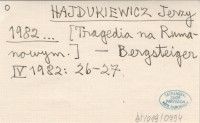 HAJDUKIEWICZ Jerzy
1982... [Tragedia na Ruma-
nowym.] - Bergsteiger
IV 1982: 26-27.